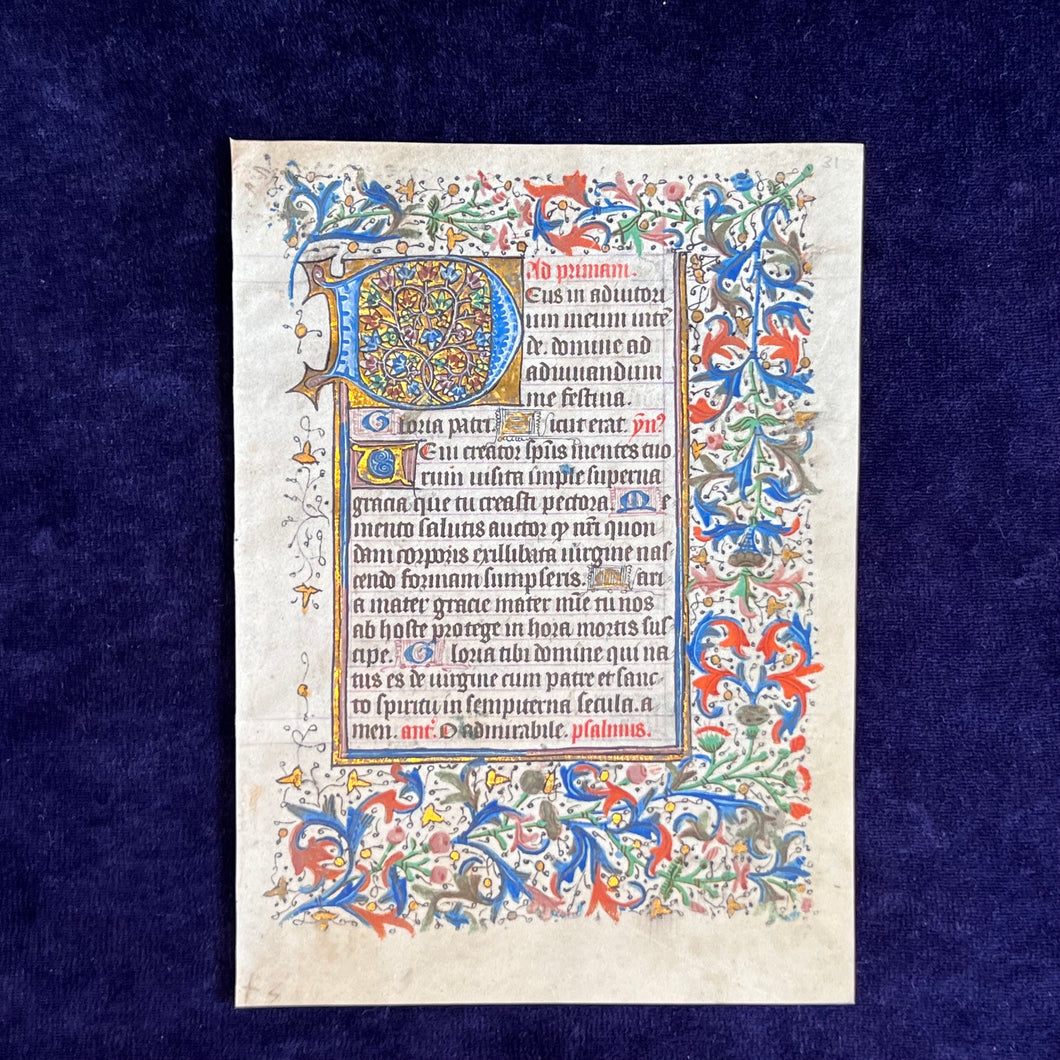 31
Ad primam.
Deus in adiutori
um meum inte̅
de. domine ad
adiuuandum
me festina.
Gloria patri. Sicut erat. yn̅ꝰ
Ueni creator sp̅us mentes tuo
rum uisita imple superna
gracia que tu creasti pectora. Me
mento salutis auctor qꝫ nr̅i quon
dam corporis exillibata uirgine nas
cendo formam sumpseris. Mari
a mater gracie mater mi̅e tu nos
ab hoste protege in hora mortis sus
cipe. Gloria tibi domine qui na
tus es de uirgine cum patre et sanc-
to spiritu in sempiterna secula. a
men. ant̅. O admirabile. psalmus.